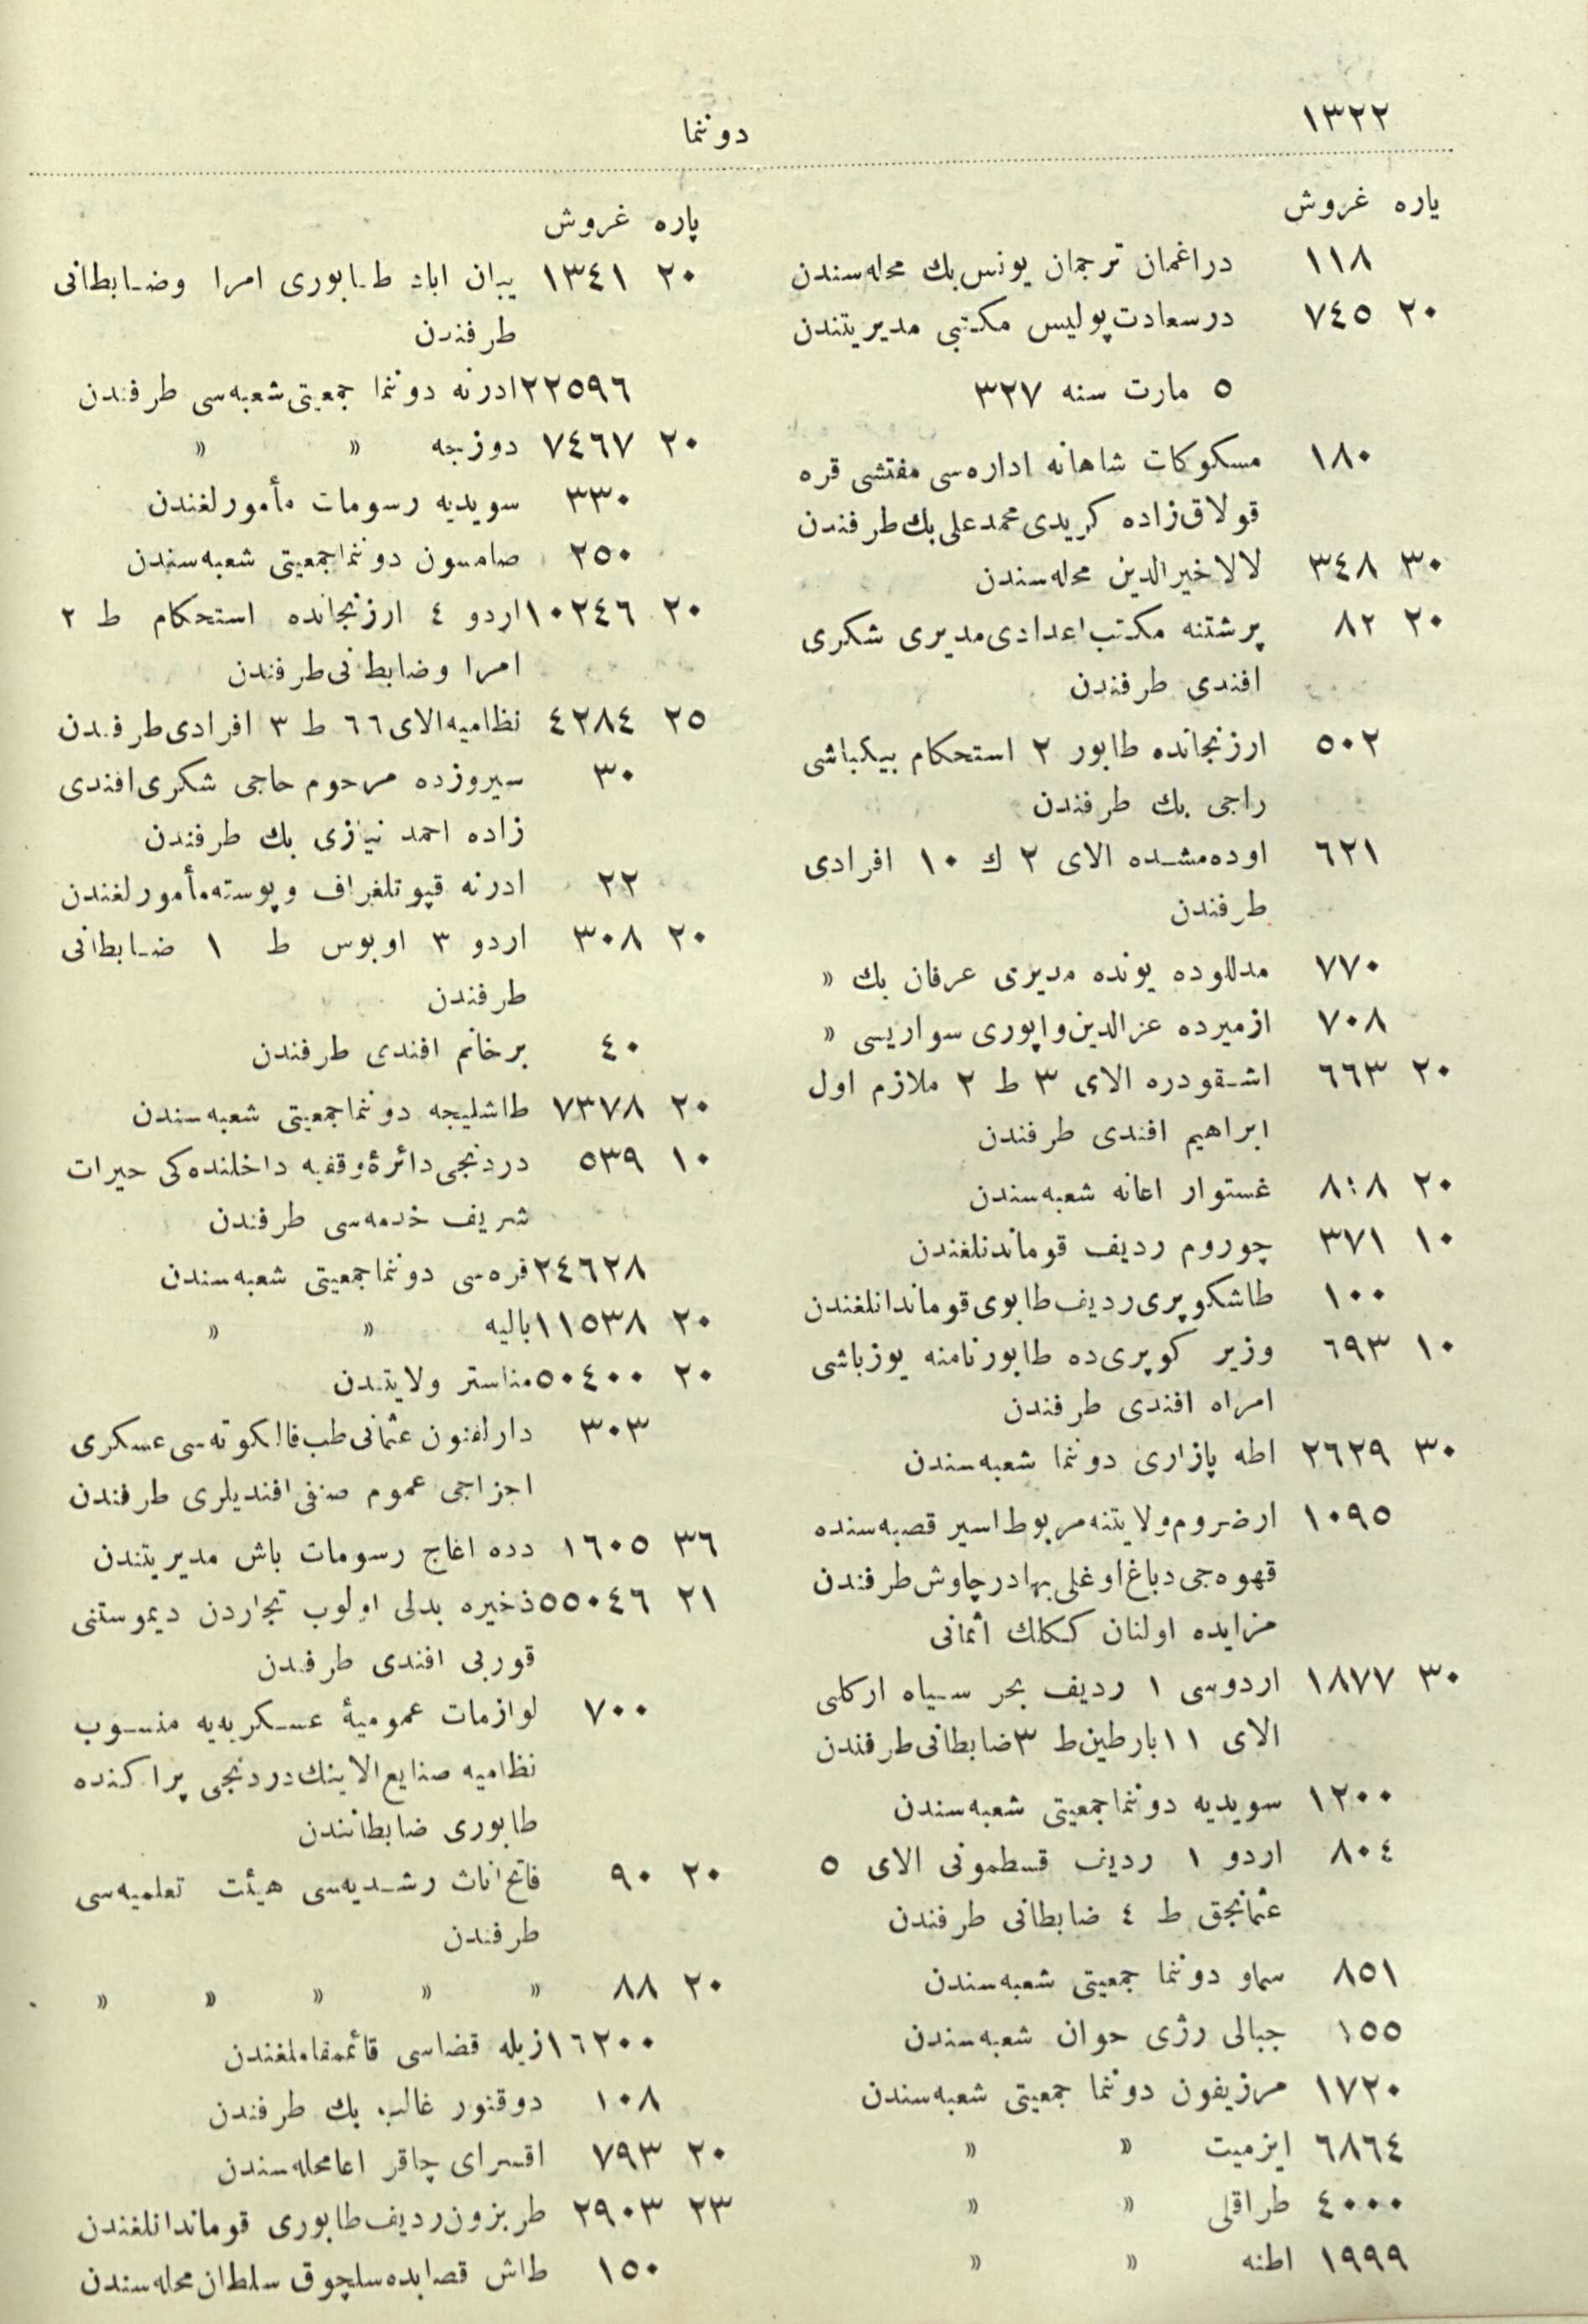 ١٣٢٢
دوننما
پاره غروش
١١٨ دراغمان ترجمان يونس بك محله‌سندن
٢٠ ٧٤٥ درسعادت پوليس مكتبى مديريتندن
٥ مارت سنه ٣٢٧
١٨٠ مسكوكات شاهانه اداره‌سى مفتشى قره
قولاق زاده كريدى محمد على بك طرفندن
٣٠ ٣٤٨ لالا خيرالدين محله‌سندن
٢٠ ٨٢ پرشتنه مكتب اعدادى مديرى شكرى
افندى طرفندن
٥٠٢ ارزنجانده طابور ٢ استحكام بيكباشى
راجى بك طرفندن
٦٢١ اوده‌مشده الاى ٢ ك ١٠ افرادى
طرفندن
٧٧٠ مدللوده يونده مديرى عرفان بك »
٧٠٨ ازميرده عزالدين واپورى سواريسى »
٢٠ ٦٦٣ اشقودره الاى ٣ ط ٢ ملازم اول
ابراهيم افندى طرفندن
٢٠ ٨٤٨ غستوار اعانه شعبه‌سندن
١٠ ٣٧١ چوروم رديف قوماندنلغندن
١٠٠ طاشكوپرى رديف طابوى قوماندانلغندن
١٠ ٦٩٣ وزير كوپرى ده طابور نامنه يوزباشى
امراه افندى طرفندن
٣٠ ٢٦٢٩ اطه پازارى دوننما شعبه‌سندن
١٠٩٥ ارضروم ولايتنه مربوط اسير قصبه‌سنده
قهوه‌جى دباغ اوغلى بهادر چاوش طرفندن
مزايده اولنان ككلك اثمانى
٣٠ ١٨٧٧ اردوسى ١ رديف بحر سياه اركلى
الاى ١١ بارطين ط ٣ ضابطانى طرفندن
١٢٠٠ سويديه دوننما جمعيتى شعبه‌سندن
٨٠٤ اردو ١ رديف قسطمونى الاى ٥
عثمانجق ط ٤ ضابطانى طرفندن
٨٥١ سماو دوننما جمعيتى شعبه‌سندن
١٥٥ جبالى رژى حوان شعبه‌سندن
١٧٢٠ مرزيفون دوننما جمعيتى شعبه‌سندن
٦٨٦٤ ايزميت » »
٤٠٠٠ طراقلى » »
١٩٩٩ اطنه » »
پاره غروش
٢٠ ١٣٤١ يبان اباد طابورى امرا وضابطانى
طرفندن
٢٢٥٩٦ ادرنه دوننما جمعيتى شعبه‌سى طرفندن
٢٠ ٧٤٦٧ دوزجه » »
٣٣٠ سويديه رسومات مأمورلغندن
٢٥٠ صامسون دوننما جمعيتى شعبه‌سندن
٢٠ ١٠٢٤٦ اردو ٤ ارزنجانده استحكام ط ٢
امرا وضابطانى طرفندن
٢٥ ٤٢٨٤ نظاميه الاى ٦٦ ط ٣ افرادى طرفدن
٣٠ سيروزده مرحوم حاجى شكرى افندى
زاده احمد نيازى بك طرفندن
٢٢ ادرنه قپو تلغراف وپوسته مأمورلغندن
٢٠ ٣٠٨ اردو ٣ اوبوس ط ١ ضابطانى
طرفندن
٤٠ برخانم افندى طرفندن
٢٠ ٧٣٧٨ طاشليجه دوننما جمعيتى شعبه‌سندن
١٠ ٥٣٩ دردنجى دائرۀ وقفيه داخلنده كى حيرات
شريف خدمه‌سى طرفندن
٢٤٦٢٨ قره‌سى دوننما جمعيتى شعبه‌سندن
٢٠ ١١٥٣٨ باليه » »
٢٠ ٥٠٤٠٠ مناستر ولايتندن
٣٠٣ دارلفنون عثمانى طب فالكوته‌سى عسكرى
اجزاجى عموم صنفى افنديلرى طرفندن
٣٦ ١٦٠٥ دده اغاج رسومات باش مديريتندن
٢١ ٥٥٠٤٦ ذخيره بدلى اولوب تجاردن ديموستنى
قوربى افندى طرفدن
٧٠٠ لوازمات عموميۀ عسكريه‌يه منسوب
نظاميه صنايع الاينك دردنجى پراكنده
طابورى ضابطانندن
٢٠ ٩٠ فاتح اناث رشديه‌سى هيئت تعلميه‌سى
طرفندن
٢٠ ٨٨ » » » » »
١٦٢٠٠ زيله قضاسى قائممقاملغندن
١٠٨ دوقتور غالب بك طرفندن
٢٠ ٧٩٣ اقسراى چاقر اغا محله‌سندن
٢٣ ٢٩٠٣ طربزون رديف طابورى قوماندانلغندن
١٥٠ طاش قصابده سلچوق سلطان محله‌سندن